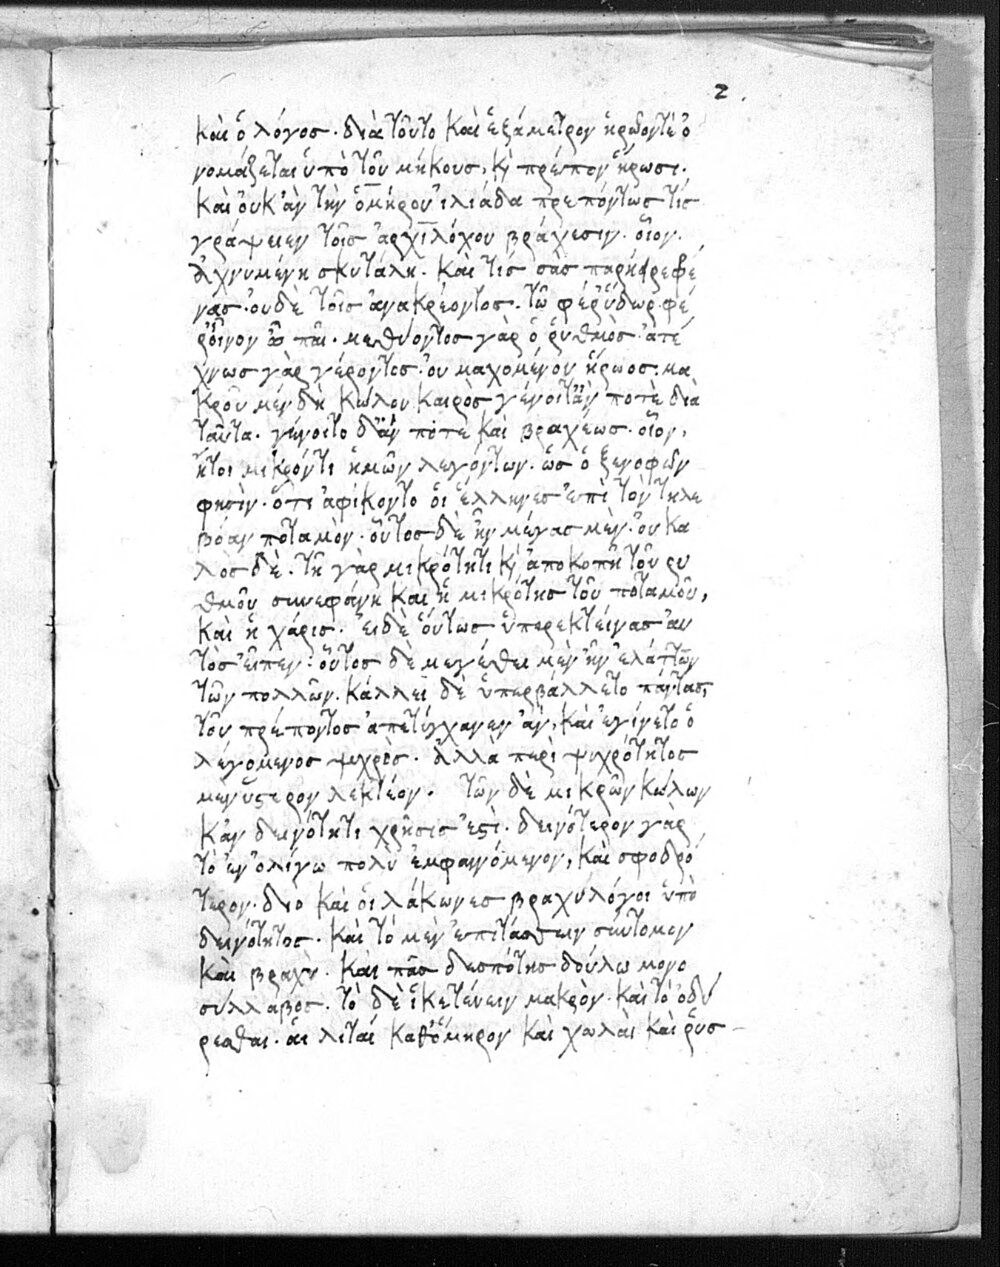 2
καὶ ὁ λόγοσ· διὰ τοῦτο καὶ ἑξάμετρον ἡρῶόντε ὀ
νομάζεται ὑπὸ τοῦ μήκουσ, κὴ πρέπον ἥρωσι.
καὶ ὀυκ ἀν τὴν ὁμήρου ἰλιάδα πρεπόντωσ τίσ
γράψειεν τοῖσ ἀρχιλόχου βράχεσιν· οἷον.
ἀχνυμένη σκυτάλη. καὶ τίσ σὰσ παρήειρε φρέ
νασ· ὀυδὲ τοῖσ ἀνακρέοντοσ. τῶ φέρ' ὕδωρ φέ
ρ' οἶνον ὦ παῖ. μεθύοντοσ γὰρ ὁ ῥυθμὸσ ἀτέ
χνωσ γὰρ γέροντοσ· ὀυ μαχομένου ἥρωοσ. μα
κροῦ μὲν δὴ κώλου καιρὸσ γένοιτ' ἂν ποτὲ διὰ
ταῦτα. γένοιτο δ' ἂν ποτε καὶ βραχέωσ· οἷον,
ἤτοι μικρόν τι ἡμῶν λεγόντων. ὡσ ὁ ξενοφῶν
φησὶν· ὅτι ἀφίκοντο ὁι ἕλληνεσ ἐπὶ τὸν τηλε
βόαν ποταμὸν· οὗτοσ δὲ ἦν μέγασ μὲν· ὀυ κα
λὸσ δὲ. τῆ γὰρ μικρότητι κὴ ἀποκοπῆ τοῦ ῥυ
θμοῦ συνεφάνη καὶ ἡ μικρότησ τοῦ ποταμοῦ,
καὶ ἡ χάρισ. ἐι δὲ ὅυτωσ ὑπερεκτείνασ ἀυ
τὸσ ἔιπεν· οὗτοσ δὲ μεγέθει μὲν ἦν ἐλάττων
τῶν πολλῶν. κάλλει δὲ ὑπερβάλλετο πάντασ,
τοῦ πρέποντοσ ἀπετύγχανεν ἀν, καὶ ἐγίνετο ὁ
λεγόμενοσ ψυχρὸσ. ἀλλὰ περὶ ψυχρότητοσ
μὲν ὕστερον λεκτέον. τῶν δὲ μικρῶν κώλων
κἀν δεινότητι χρῆσισ ἐστὶ. δεινότερον γὰρ
τὸ ἐν ὀλίγω πολὺ ἐμφαινόμενον, καὶ σφοδρό
τερον. διο καὶ ὁι λάκωνεσ βραχυλόγοι ὑπὸ
δεινότητοσ. καὶ τὸ μὲν ἐπιτάσσειν σύντομον
καὶ βραχὺ. καὶ πᾶσ δεσπότησ δούλω μονο
σύλλαβοσ. τὸ δὲ ἱκετέυειν μακρὸν. καὶ τὸ ὀδύ
ρεσθαι. ἁι λιταί καθ' ὅμηρον καὶ χωλὰι καὶ ῥυσ –